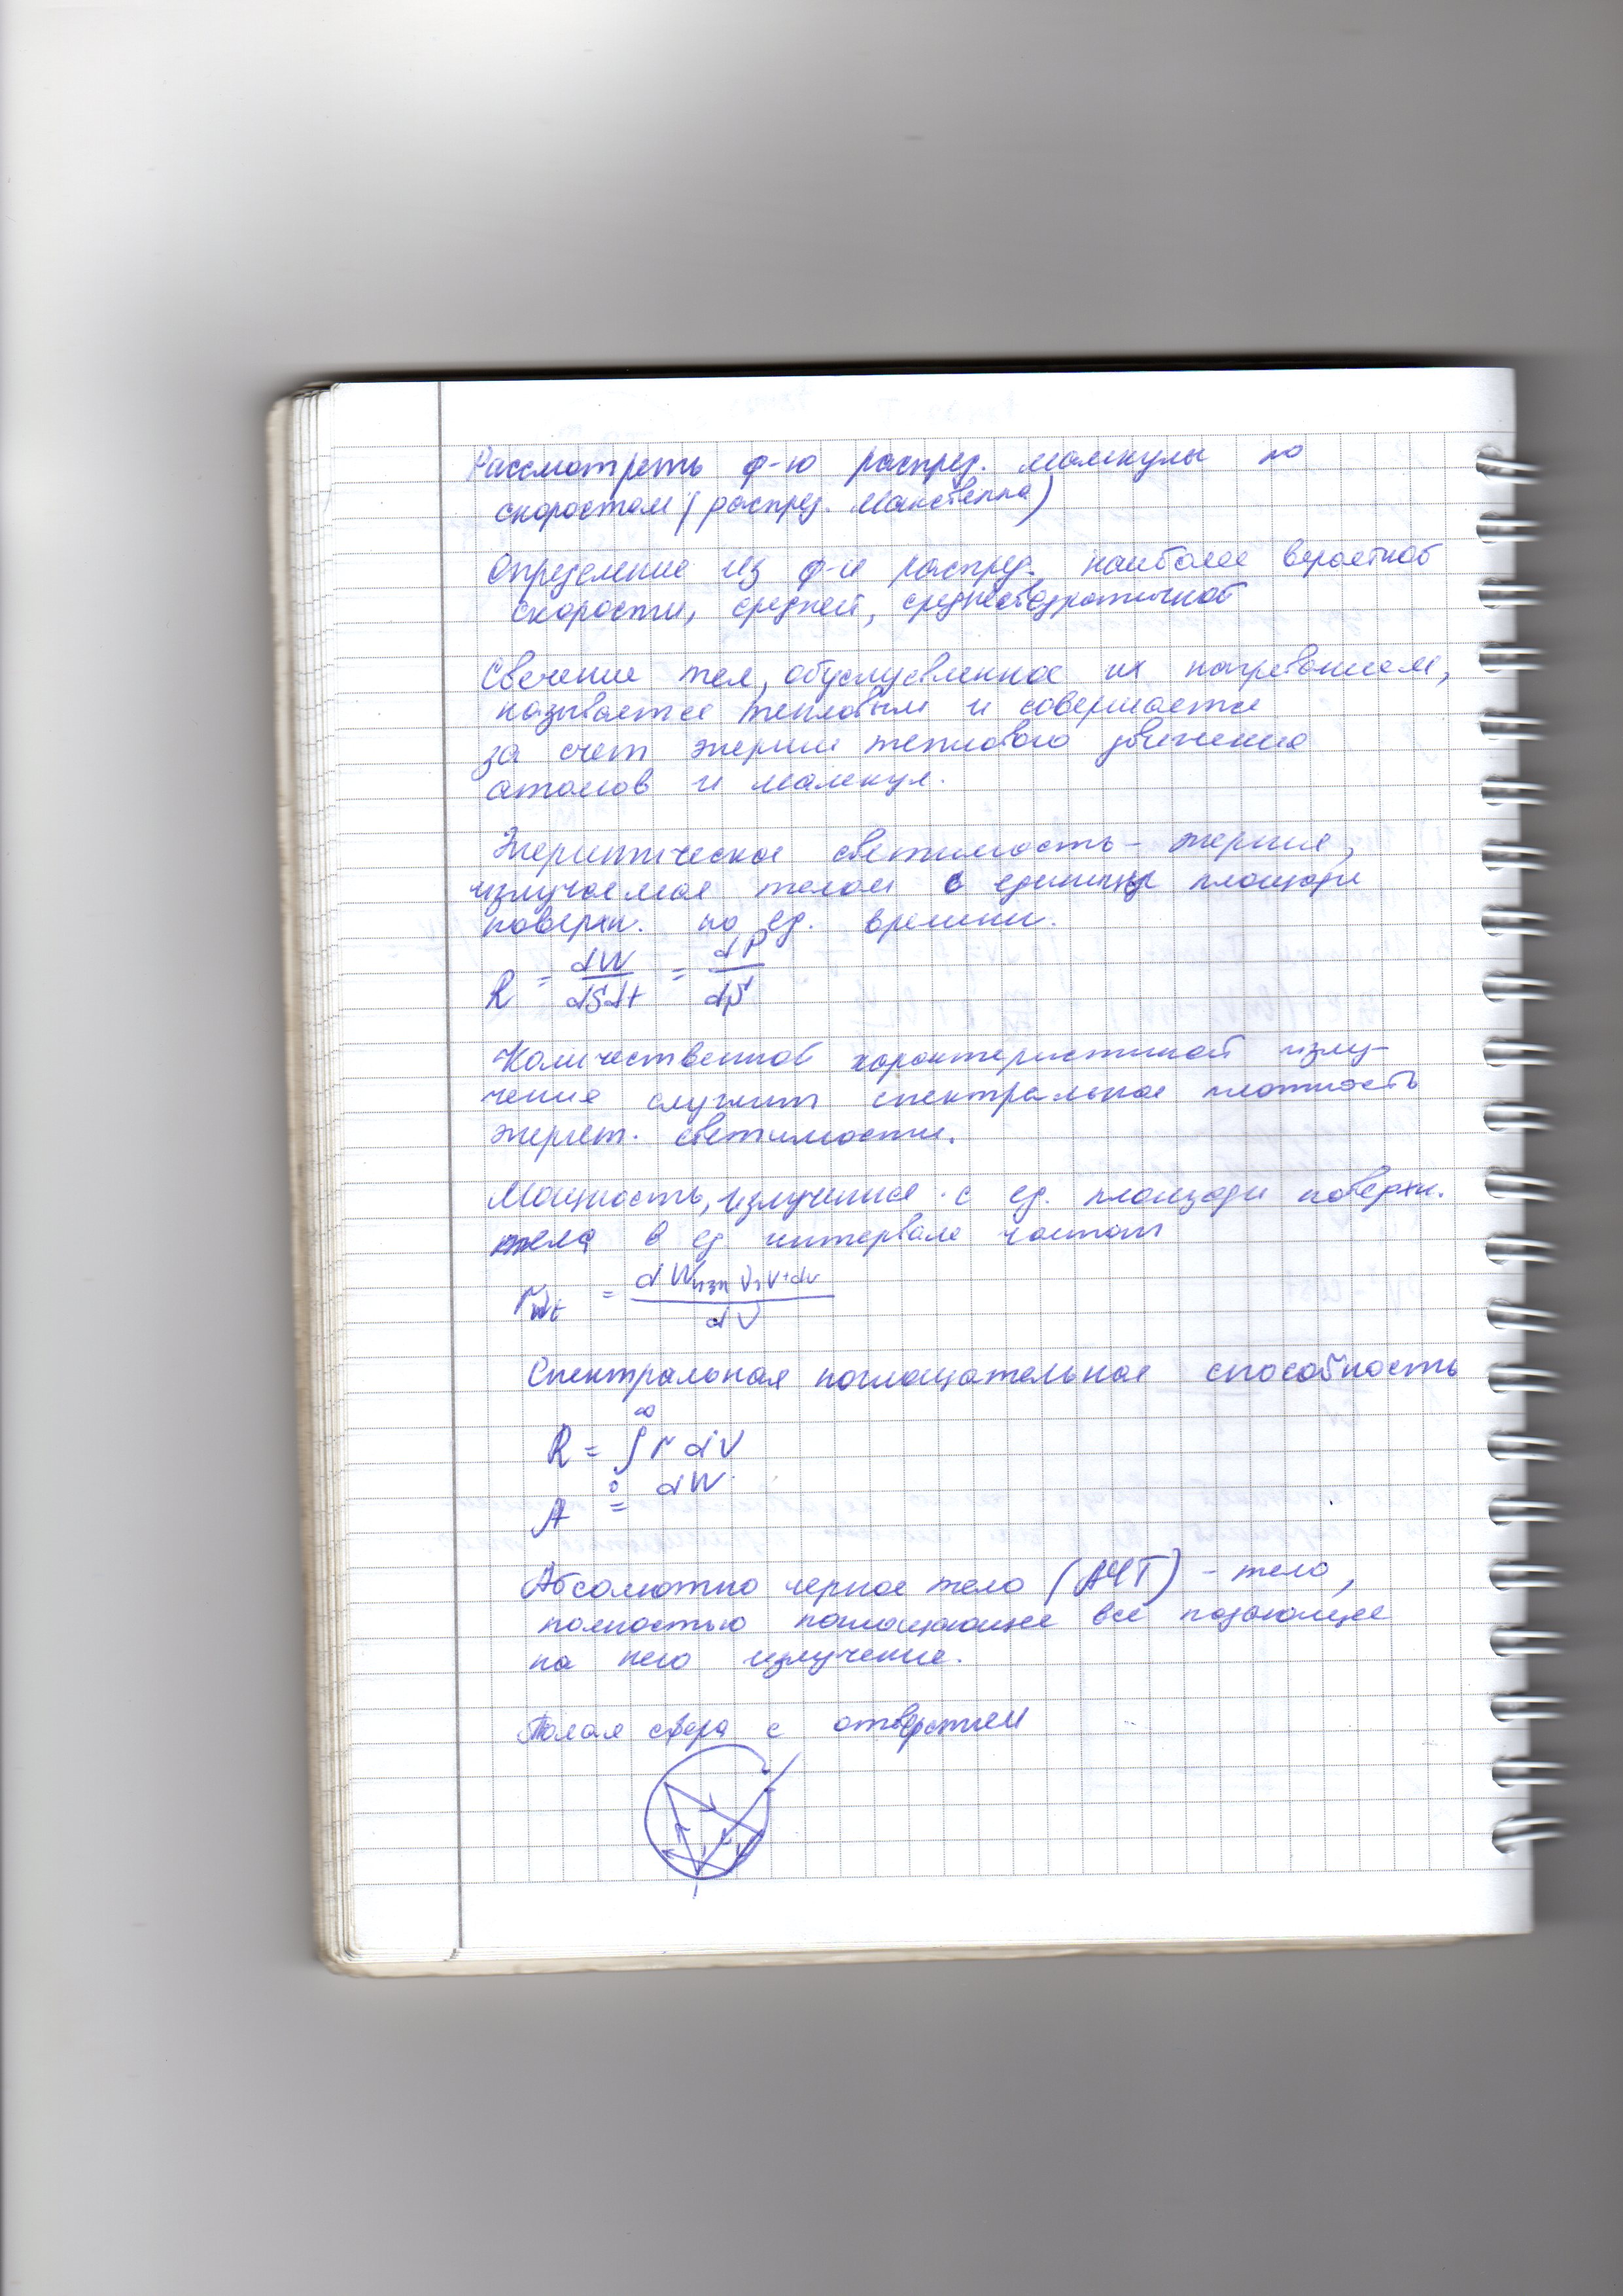 Рассмотреть ф-ю распред. молекулы по
скоростям (распред. Максвелла)
Определение из ф-и распред. наиболее вероятной
скорости, средней, среднеквадратичной
Свечение тел, обусловленное их нагреванием,
называется тепловым и совершается
за счет энергии теплового движения
атомов и молекул.
Энергетическая светимость - энергия,
излучаемая телом с единицы площади
поверхн. по ед. времени.
R = dW/dSdt = dP/dS
Количественной характеристикой излу-
чения служит спектральная плотность
энергет. светимости.
Мощность, излучения с ед. площади поверхн.
тела в ед интервале частот
= dWизл ν,ν+dν / dν
Спектральная поглощательная способность
R = ∫₀^∞ r dν
A = dW
Абсолютно черное тело (АЧТ) - тело,
полностью поглощающее все падающее
на него излучение.
Полая сфера с отверстием